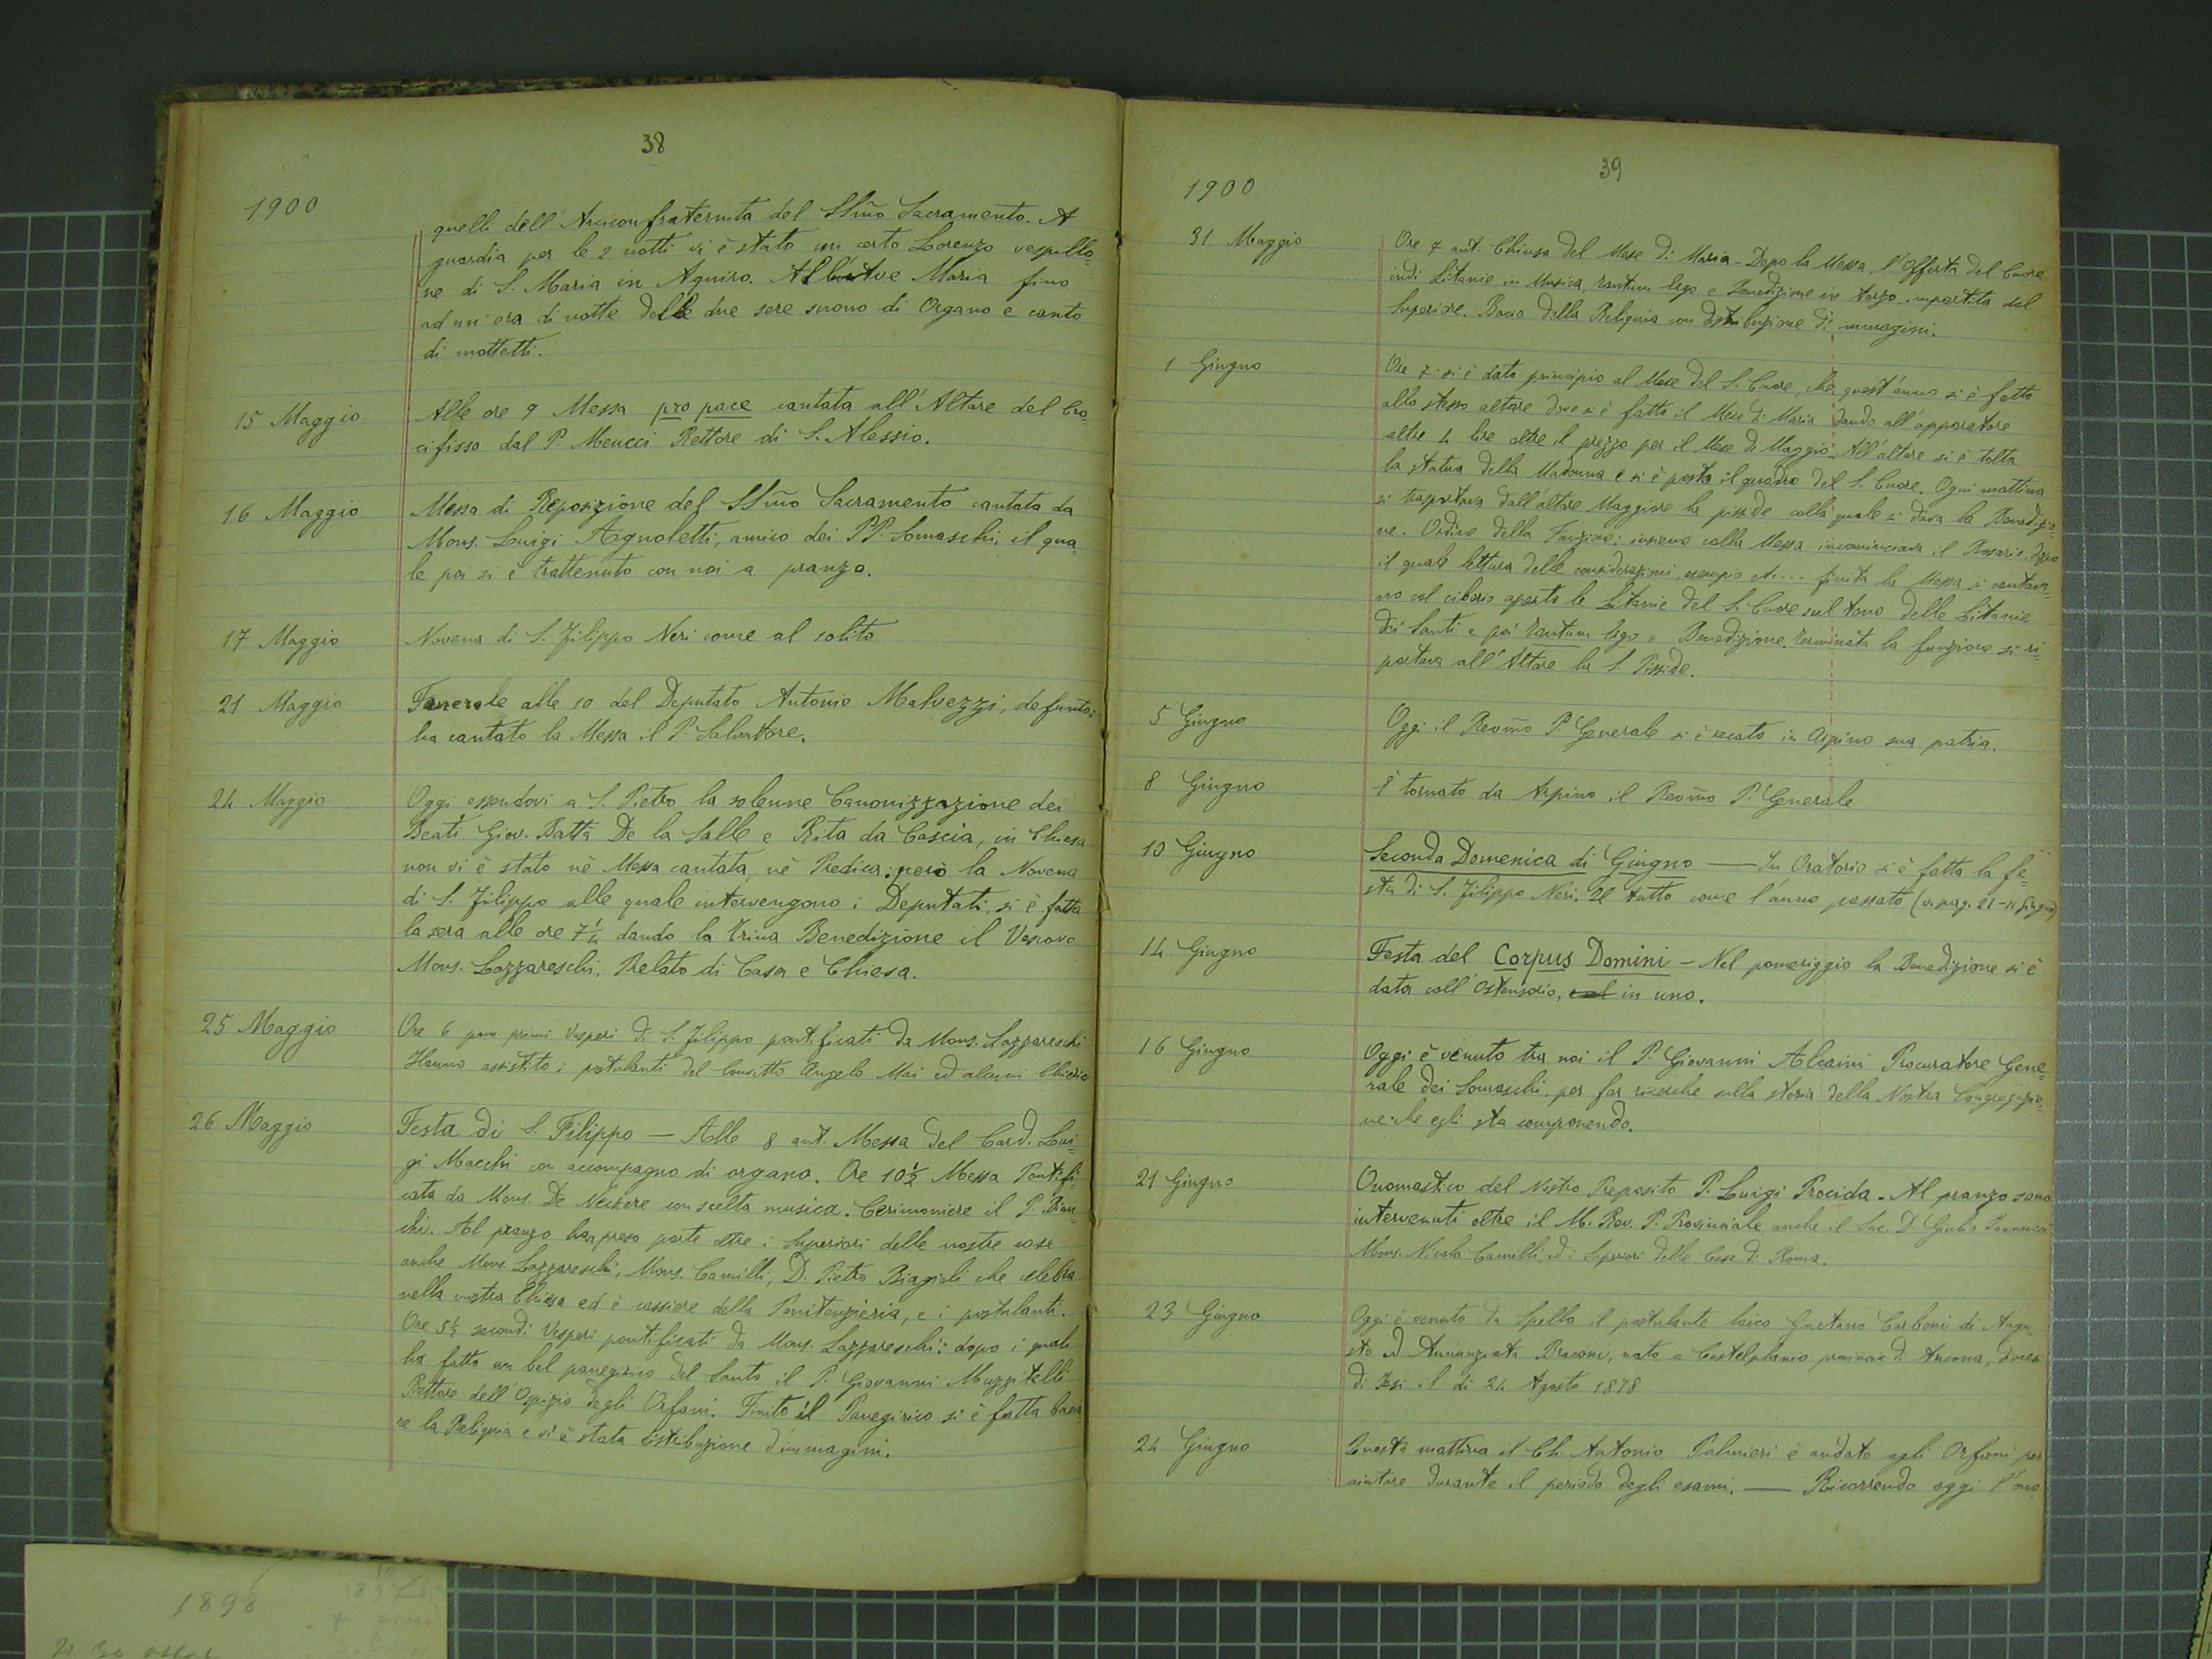 38
1900
quelli dell'Arciconfraternita del SSmo Sacramento. A
guardia per le 2 notti vi è stato un certo Lorenzo vespillo=
ne di S. Maria in Aquiro. All'Ave Maria fino
ad un'ora di notte delle due sere suono di Organo e canto
di mottetti.
15 Maggio Alle ore 9 Messa pro pace cantata all'Altare del Cro=
cifisso dal P. Meucci Rettore di S. Alessio.
16 Maggio Messa di Reposizione del SSmo Sacramento cantata da
Mons. Luigi Agnoletti, amico dei PP. Somaschi, il qua=
le poi si è trattenuto con noi a pranzo.
17 Maggio Novena di S. Filippo Neri come al solito
21 Maggio Funerale alle 10 del Deputato Antonio Malvezzi, defunto;
ha cantato la Messa il P. Salvatore.
24 Maggio Oggi essendovi a S. Pietro la solenne Canonizzazione dei
Beati Giov. Batta De la Salle e Rita da Cascia, in Chiesa
non vi è stato nè Messa cantata, nè Predica; però la Novena
di S. Filippo alle quale intervengono i Deputati, si è fatta
la sera alle ore 7 1/4 dando la trina Benedizione il Vescovo
Mons. Lazzareschi, Prelato di Casa e Chiesa.
25 Maggio Ore 6 pom. primi Vesperi di S. Filippo pontificati da Mons. Lazzareschi
Hanno assistito i postulanti del Convitto Angelo Mai ed alcuni Chierici
26 Maggio Festa di S. Filippo — Alle 8 ant. Messa del Card. Lui=
gi Macchi con accompagno di organo. Ore 10 1/2 Messa Pontifi=
cata da Mons. De Neckere con scelta musica. Cerimoniere il P. Bian=
chi. Al pranzo han preso parte oltre i Superiori delle nostre case
anche Mons. Lazzareschi, Mons. Camilli, D. Pietro Biagioli che celebra
nella nostra Chiesa ed è cassiere della Penitenzieria, e i postulanti.
Ore 5 1/2 secondi Vesperi pontificati da Mons. Lazzareschi: dopo i quali
ha fatto un bel panegirico del Santo il P. Giovanni Muzzitelli
Rettore dell'Ospizio degli Orfani. Finito il Panegirico si è fatta bacia
re la Reliquia e vi è stata distribuzione d'immagini.
39
1900
31 Maggio Ore 7 ant. Chiusa del Mese di Maria - Dopo la Messa, l'offerta del Cuore
indi Litanie in Musica, tantum ergo e Benedizione in terzo impartita dal
Superiore. Bacio della Reliquia con distribuzione di immagini.
1 Giugno Ore 7: si è dato principio al Mese del S. Cuore, che quest'anno si è fatto
allo stesso altare dove si è fatto il Mese di Maria dando all'apparatore
altre 4 lire oltre il prezzo per il Mese di Maggio. All'altare si è tolta
la statua della Madonna e si è posto il quadro del S. Cuore. Ogni mattina
si trasportava dall'altare Maggiore la pisside colla quale si dava la Benedizio=
ne. Ordine della Funzione: insieme colla Messa incominciava il Rosario, dopo
il quale lettura delle considerazioni, esempio etc... finita la Messa si cantava=
no col ciborio aperto le Litanie del S. Cuore sul tono delle Litanie
dei Santi e poi tantum ergo e Benedizione. Terminata la funzione si ri=
portava all'Altare la S. Pisside.
5 Giugno Oggi il Revmo P. Generale si è recato in Arpino sua patria.
8 Giugno È tornato da Arpino il Revmo P. Generale
10 Giugno Seconda Domenica di Giugno — In Oratorio si è fatta la fe=
sta di S. Filippo Neri. Il tutto come l'anno passato (v. pag. 21 - 11 giugno)
14 Giugno Festa del Corpus Domini - Nel pomeriggio la Benedizione si è
data coll'Ostensorio, in uno.
16 Giugno Oggi è venuto tra noi il P. Giovanni Alcaini Procuratore Gene=
rale dei Somaschi, per far ricerche sulla storia della Nostra Congregazio=
ne che egli sta componendo.
21 Giugno Onomastico del Nostro Preposito P. Luigi Procida. Al pranzo sono
intervenuti oltre il M. Rev. P. Provinciale anche il Sac. D. Giulio
Mons. Nicola Camilli, ed i Superiori delle Case di Roma.
23 Giugno Oggi è venuto da Spello il postulante laico Gaetano Carboni di Augu
sto ed Annunziata Braconi, nato a Castelplanio provincia di Ancona, diocesi
di Jesi il di 24 Agosto 1878
24 Giugno Questa mattina il Ch. Antonio Palmieri è andato agli Orfani per
aiutare durante il periodo degli esami. — Ricorrendo oggi l'ono
1898